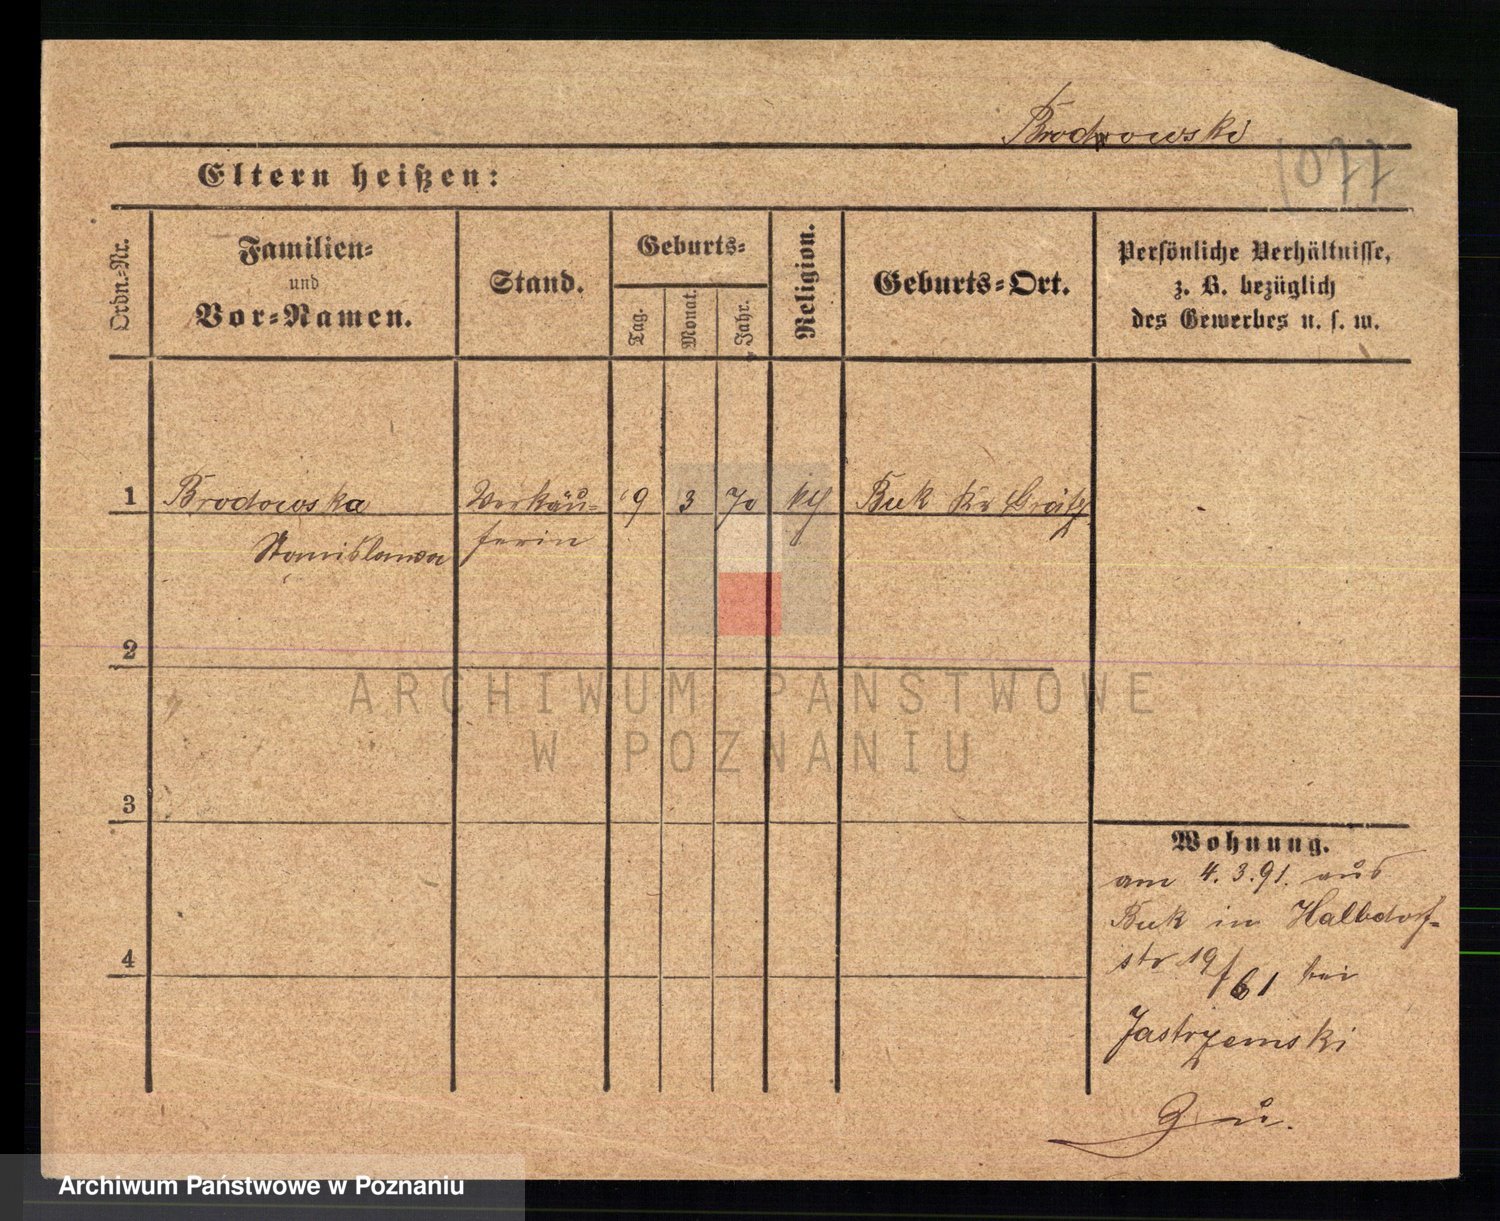 Brodowski
1077
Eltern heißen:
Ordn.-Nr.
Familien-
und
Vor-Namen.
Stand.
Geburts-
Tag.
Monat.
Jahr.
Religion.
Geburts-Ort.
Persönliche Verhältnisse,
z. B. bezüglich
des Gewerbes u. s. w.
1 Brodowska Verkäu- 9 3 70 Buk Kr Grätz
Stanislawa ferin
2
3
4
Wohnung.
am 4.3.91. aus
Buk in Halbdorf-
str 19/61 bei
Jastrzemski
ARCHIWUM PAŃSTWOWE
W POZNANIU
Archiwum Państwowe w Poznaniu